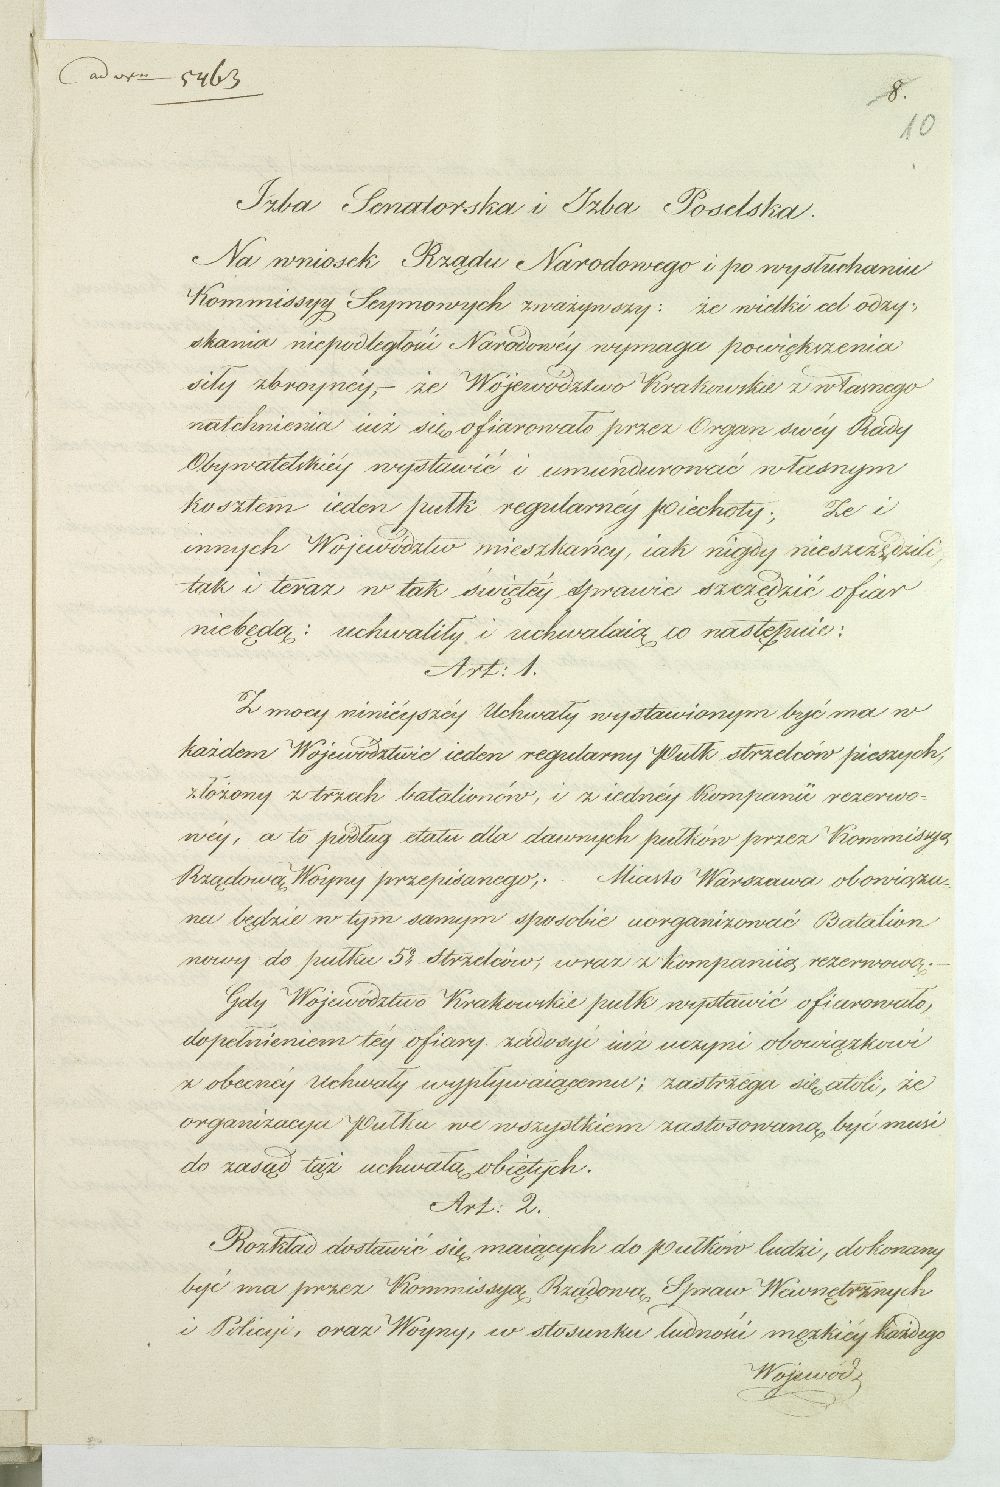 ad Nrm 5463
8.
10
Izba Senatorska i Izba Poselska.
Na wniosek Rządu Narodowego i po wysłuchaniu
Kommissyy Seymowych zważywszy: że wielki cel odzy-
skania niepodległości Narodowéy wymaga powiększenia
siły zbroynéy, – że Województwo Krakowskie z własnego
natchnienia iuż się ofiarowało przez Organ swéy Rady
Obywatelskiéy wystawić i umundurować własnym
kosztem ieden pułk regularnéy piechoty; Że i
innych Województw mieszkańcy, iak nigdy nieszczędzili,
tak i teraz w tak świętéy sprawie szczędzić ofiar
niebędą: uchwaliły i uchwalaią co następuie:
Art: 1.
Z mocy ninieyszéy Uchwały wystawionym być ma w
każdem Województwie ieden regularny Pułk strzelców pieszych,
złożony z trzech batalionów, i z iednéy kompanii rezerwo-
wéy, a to podług etatu dla dawnych pułków przez Kommissyą
Rządową Woyny przepisanego; Miasto Warszawa obowiąza-
na będzie w tym samym sposobie uorganizować Batalion
nowy do pułku 5º Strzelców, wraz z kompaniią rezerwową. –
Gdy Województwo Krakowskie pułk wystawić ofiarowało,
dopełnieniem téy ofiary zadosyć iuż uczyni obowiązkowi
z obecnéy Uchwały wypływaiącemu; zastrzega się atoli, że
organizacya Pułku we wszystkiem zastosowaną być musi
do zasad tąż uchwałą obiętych.
Art: 2.
Rozkład dostawić się maiących do pułków ludzi, dokonany
być ma przez Kommissyą Rządową Spraw Wewnętrznych
i Policyi, oraz Woyny, w stosunku ludności męzkiéy każdego
Wojewódz